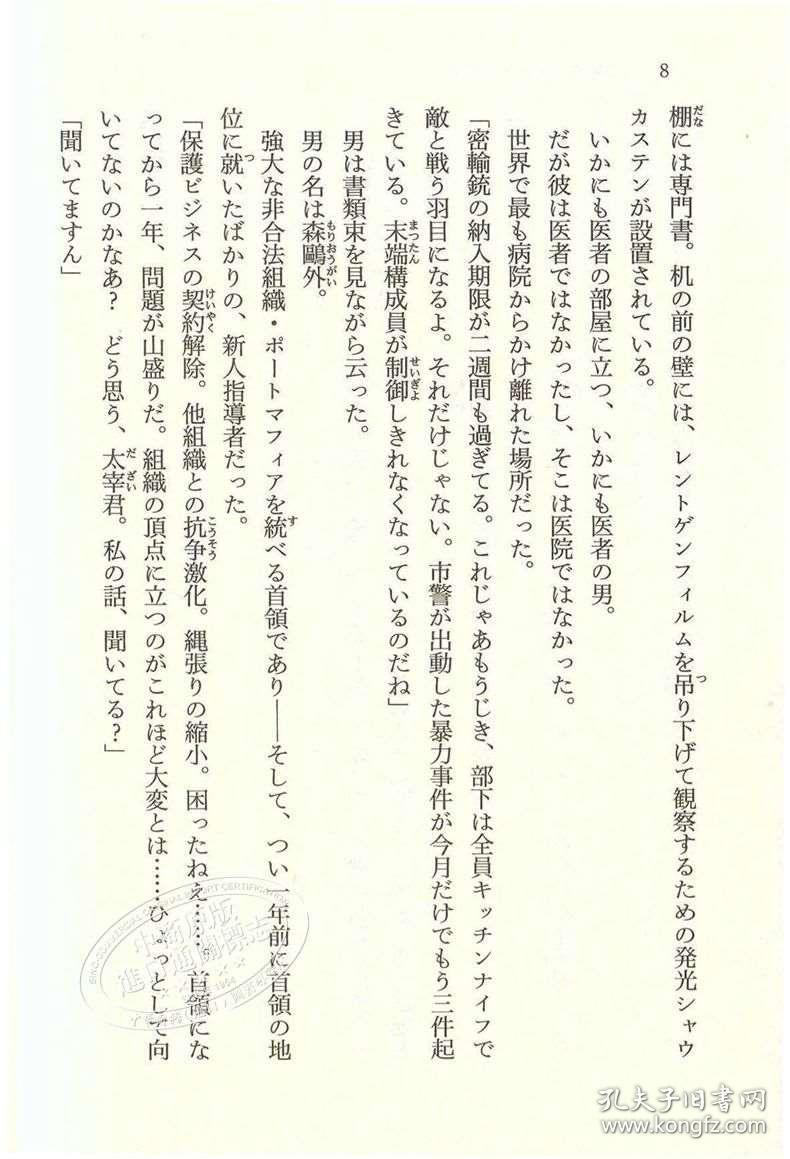 8
棚には専門書。机の前の壁には、レントゲンフィルムを吊り下げて観察するための発光シャウ
カステンが設置されている。
いかにも医者の部屋に立つ、いかにも医者の男。
だが彼は医者ではなかったし、そこは医院ではなかった。
世界で最も病院からかけ離れた場所だった。
「密輸銃の納入期限が二週間も過ぎてる。これじゃあもうじき、部下は全員キッチンナイフで
敵と戦う羽目になるよ。それだけじゃない。市警が出動した暴力事件が今月だけでもう三件起
きている。末端構成員が制御しきれなくなっているのだね」
男は書類束を見ながら云った。
男の名は森鷗外。
強大な非合法組織・ポートマフィアを統べる首領であり――そして、つい一年前に首領の地
位に就いたばかりの、新人指導者だった。
「保護ビジネスの契約解除。他組織との抗争激化。縄張りの縮小。困ったねえ……。首領にな
ってから一年、問題が山盛りだ。組織の頂点に立つのがこれほど大変とは……ひょっとして向
いてないのかなあ？　どう思う、太宰君。私の話、聞いてる？」
「聞いてますん」
中商原版
進口通關標志
孔夫子旧书网
www.kongfz.com